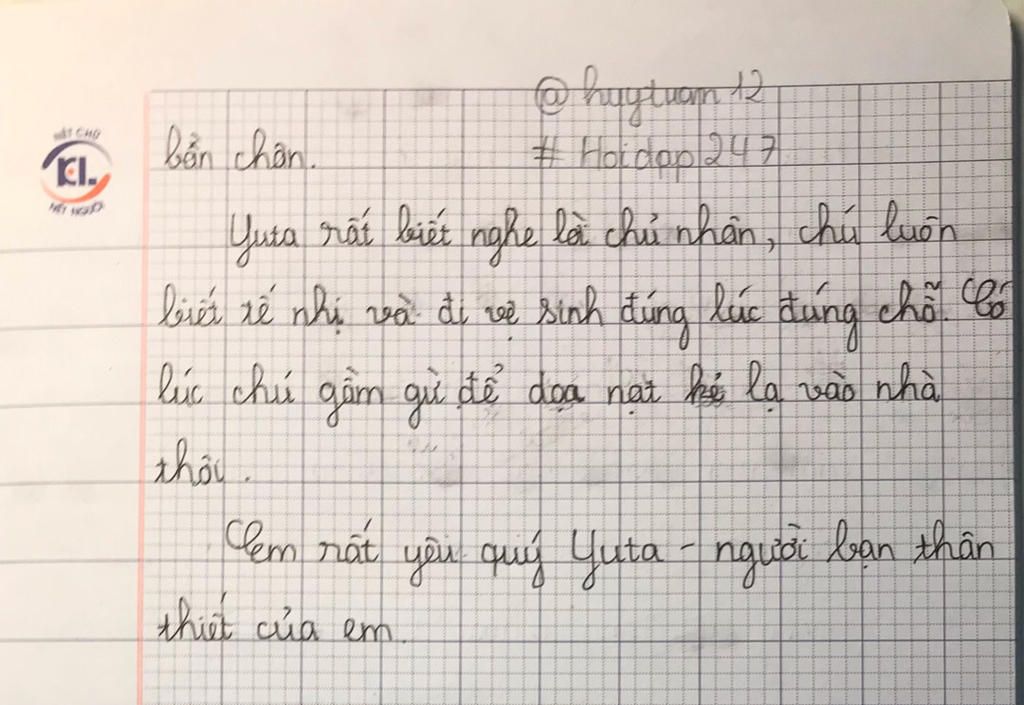 @huytuam12
bẩn chân.
# Hoidap247
NÉT CHỮ
KL.
NẾT NGƯỜI
Yuta rất biết nghe lời chủ nhân, chú luôn
biết tế nhị và đi vệ sinh đúng lúc đúng chỗ. Có
lúc chú gầm gừ để doạ nạt kẻ lạ vào nhà
thôi.
Em rất yêu quý Yuta - người bạn thân
thiết của em.